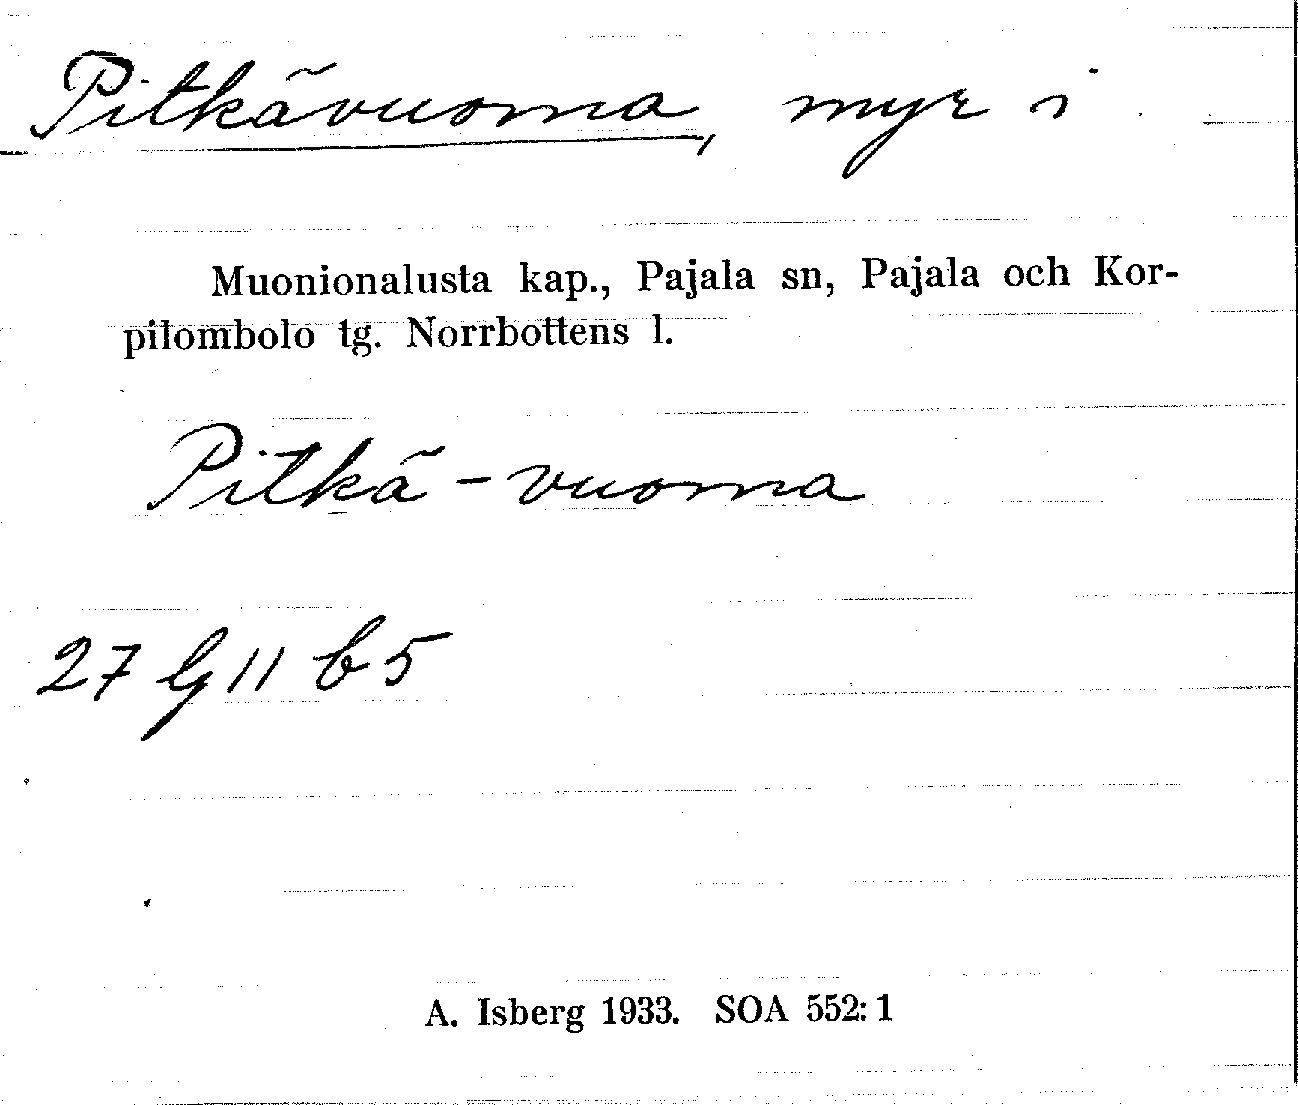 Pitkävuoma, myr i
Muonionalusta kap., Pajala sn, Pajala och Kor-
pilombolo tg. Norrbottens l.
Pitkä-vuoma
27 G 11 b 5
A. Isberg 1933. SOA 552:1